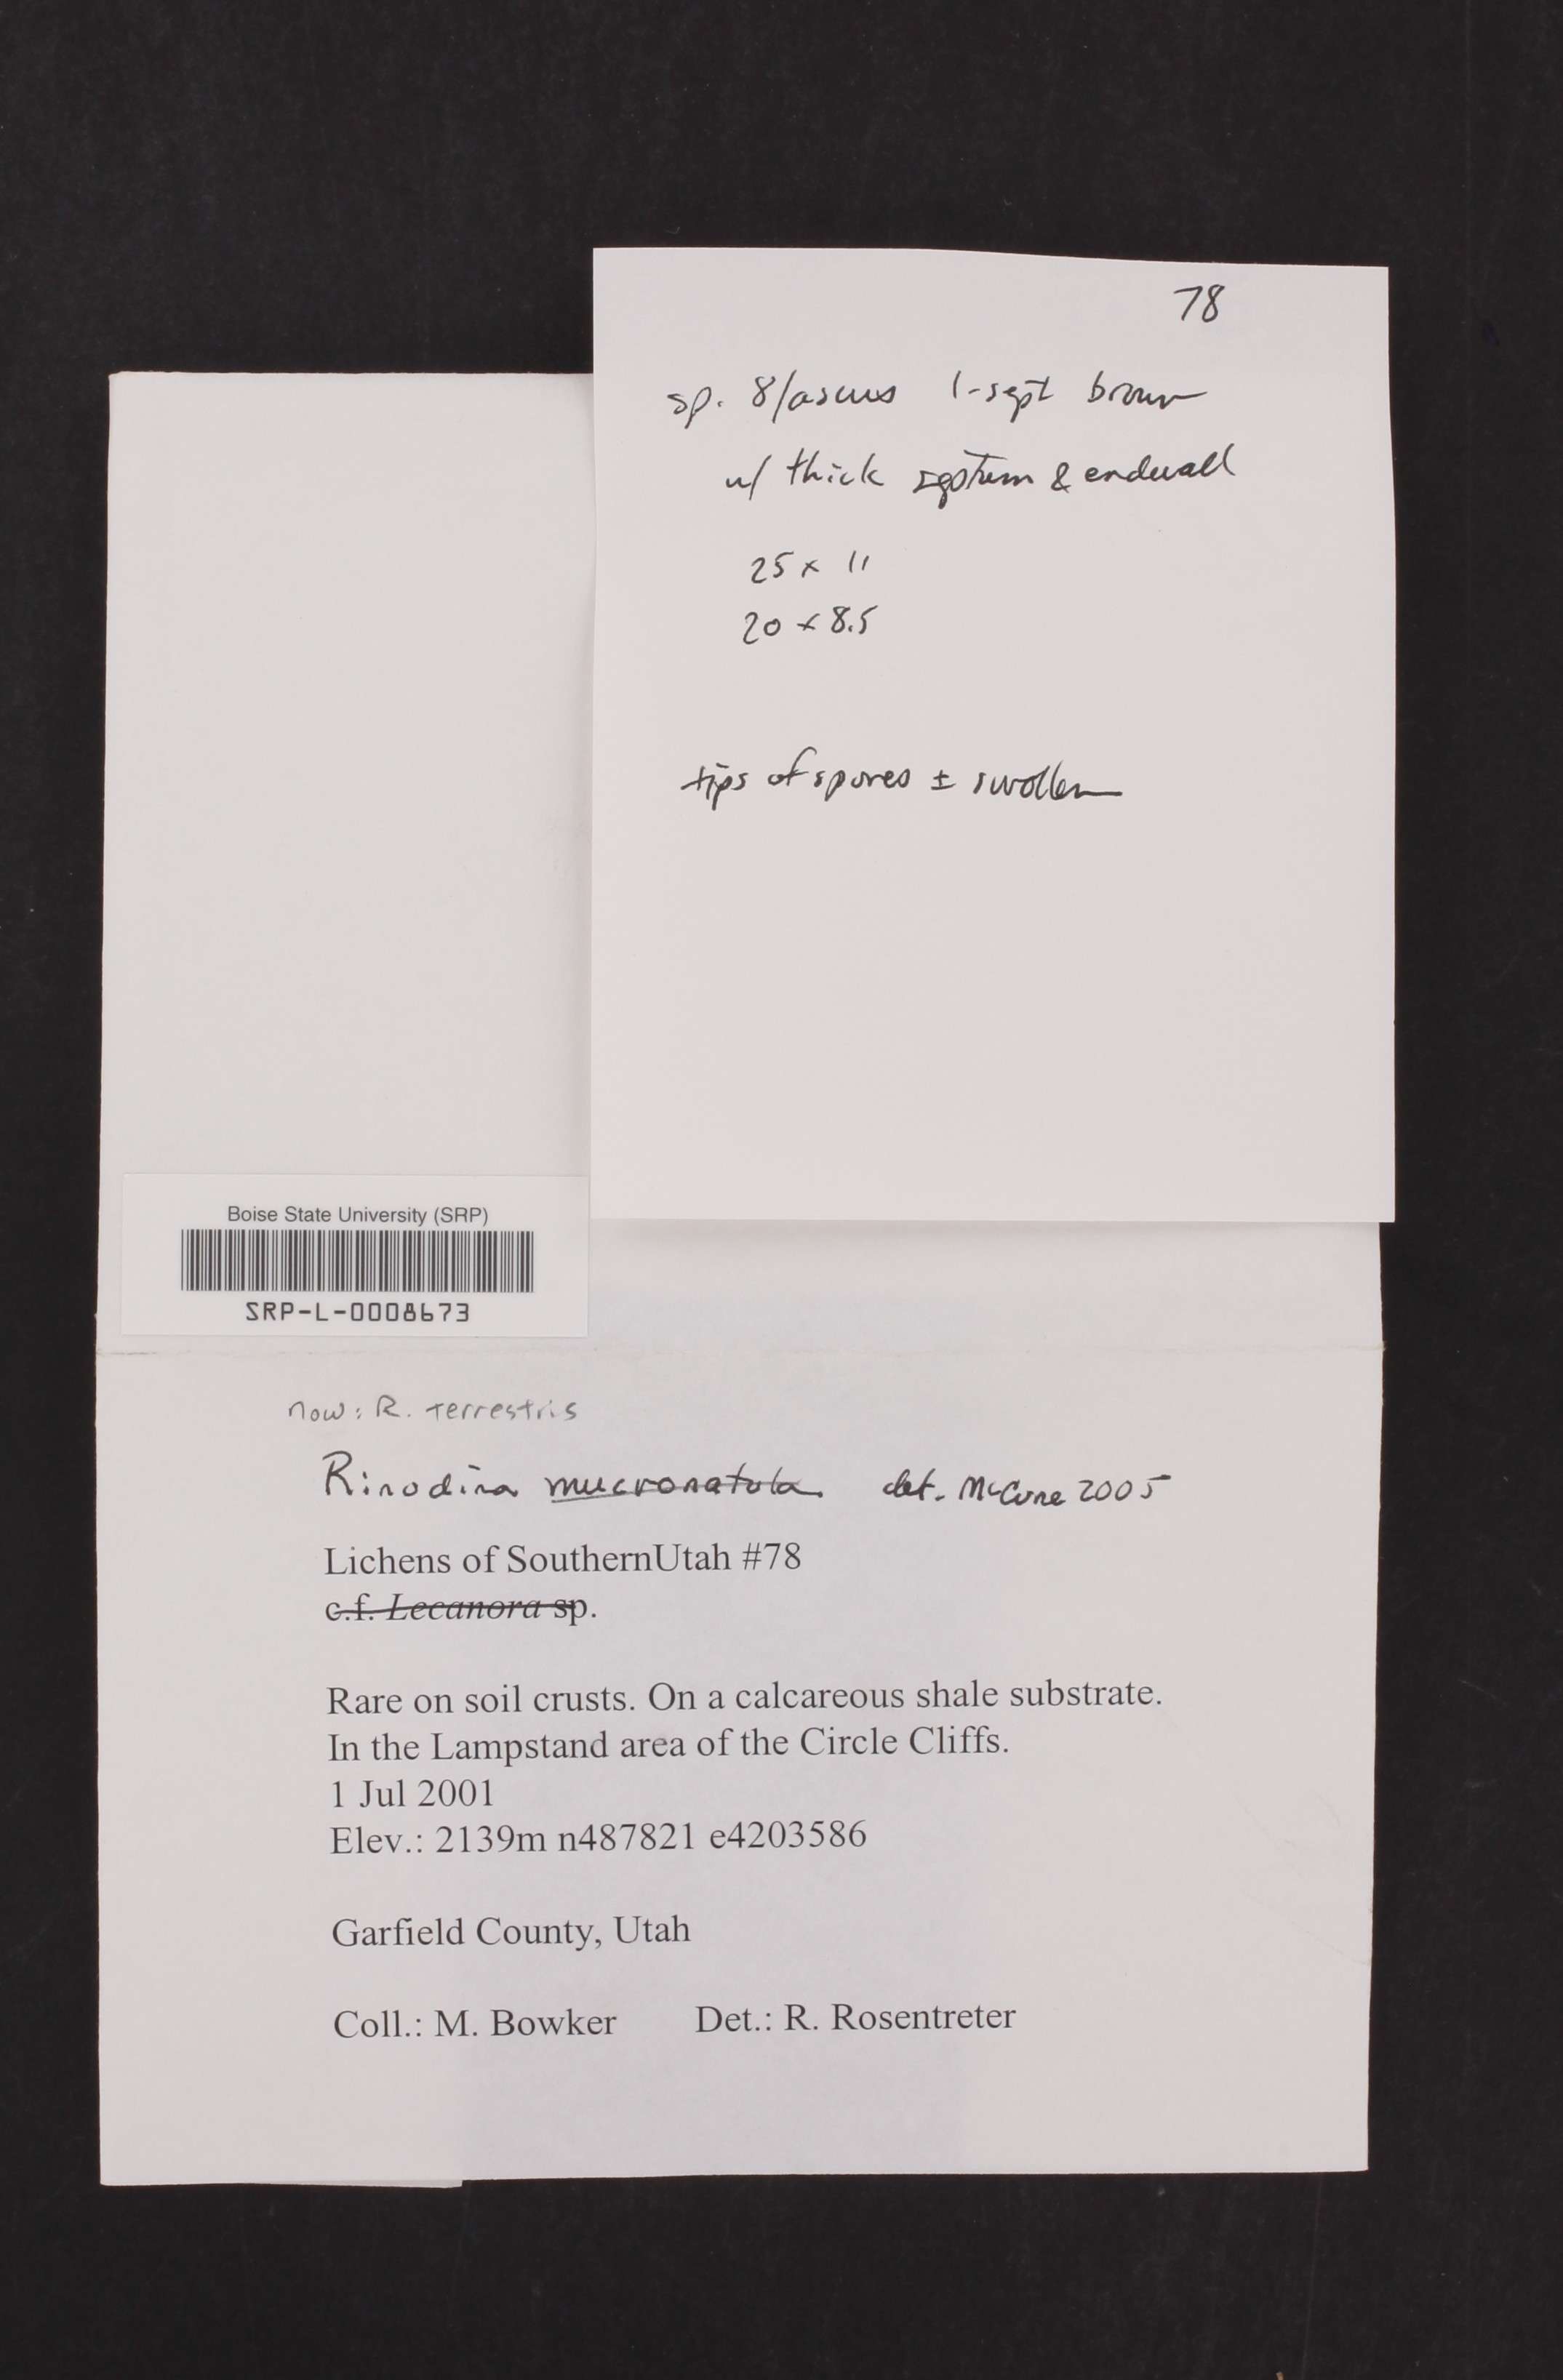 78
sp. 8/ascus 1-sept brown
w/ thick septum & endwall
25 x 11
20 x 8.5
tips of spores ± swollen
Boise State University (SRP)
SRP-L-0008673
now: R. terrestris
Rinodina mucronatula det. McCune 2005
Lichens of SouthernUtah #78
c.f. Lecanora sp.
Rare on soil crusts. On a calcareous shale substrate.
In the Lampstand area of the Circle Cliffs.
1 Jul 2001
Elev.: 2139m n487821 e4203586
Garfield County, Utah
Coll.: M. Bowker Det.: R. Rosentreter